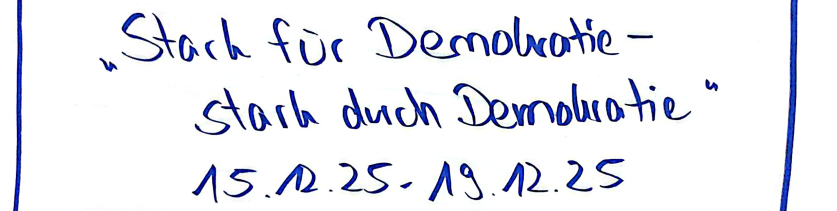 „Stark für Demokratie -
stark durch Demokratie“
15.12.25 - 19.12.25